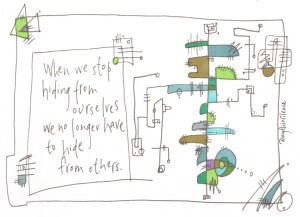 When we stop
hiding from
ourselves
we no longer have
to hide
from others.